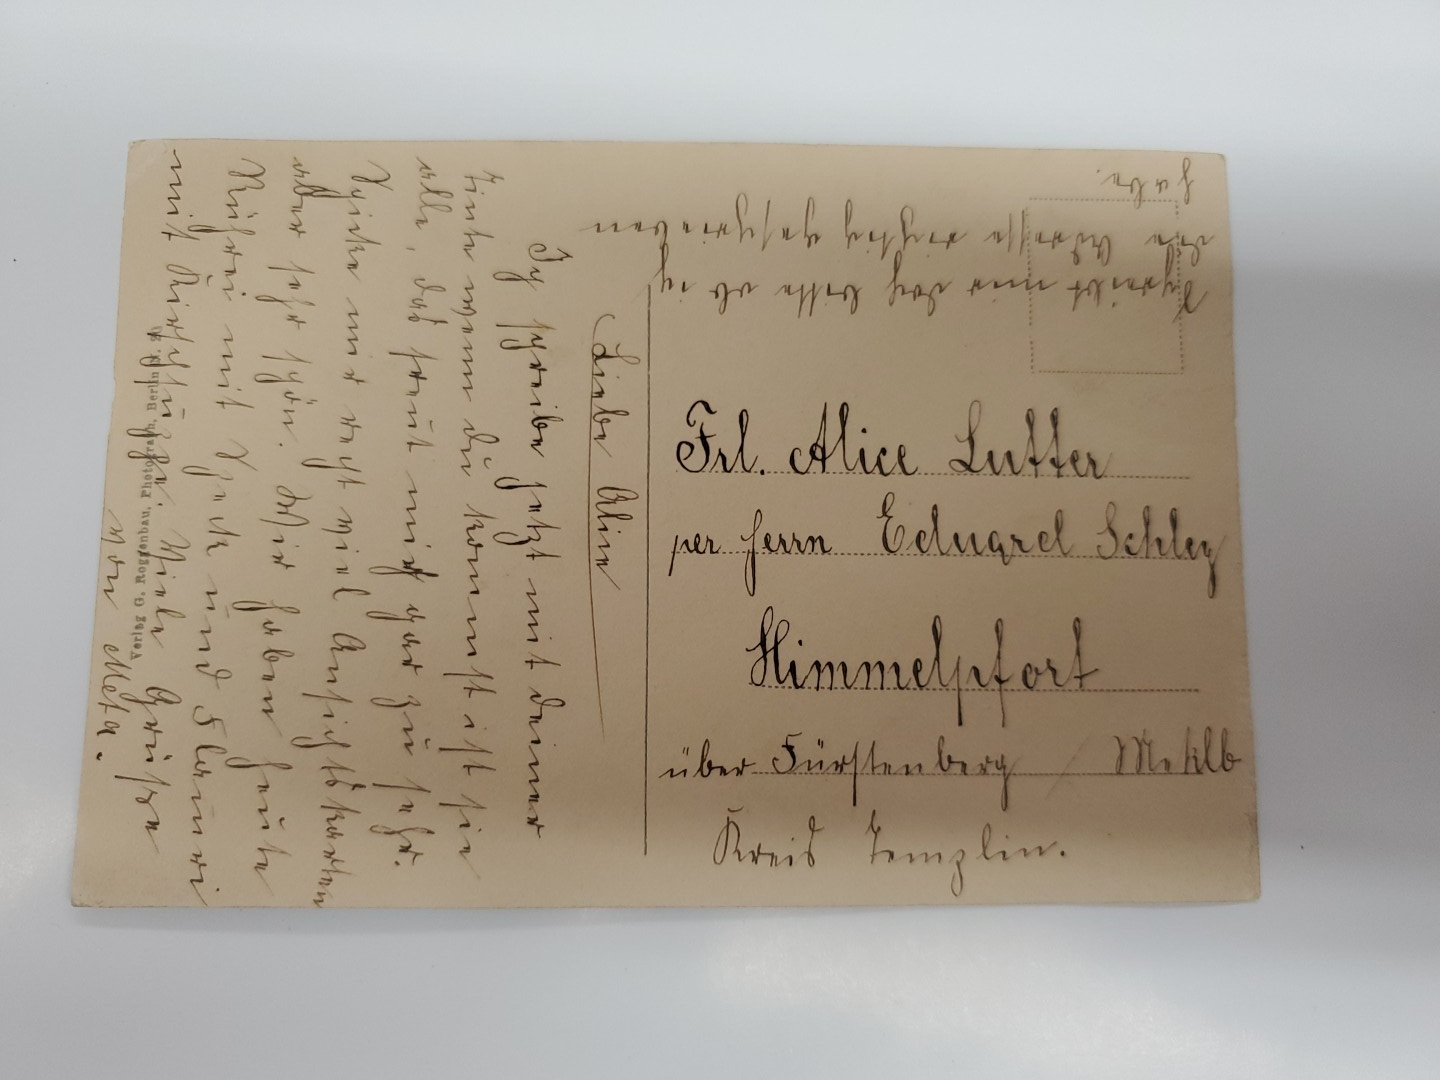 Liebe Alice
Ich schreibe jetzt mit deiner
Tinte wenn du kommst ist sie
alle, das freut mich gar zu sehr.
Schicke mir recht viel Ansichtskarten
aber sehr schön. Wir haben heute
Rührei mit Speck und Flaumri
mit Kirschsuppe. Viele Grüße
von Meta.
Frl. Alice Lutter
per Herrn Eduard Schley
Himmelpfort
über Fürstenberg / Meklb
Kreis Templin.
Schreibt mir doch bitte ob ich
die Adresse richtig geschrieben
habe.
Verlag G. Roggenbau, Photograph, Berlin N. 20